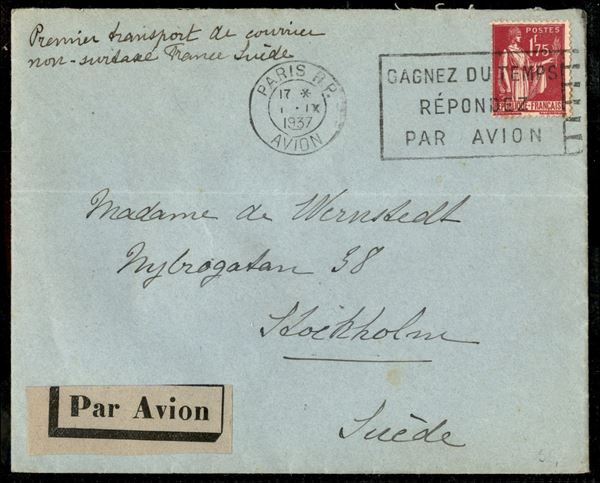 Premier transport de courrier
non-surtaxe France Suède
PARIS R.P.
17 *
1 . IX
1937
AVION
POSTES
1F75
RÉPUBLIQUE-FRANÇAISE
GAGNEZ DU TEMPS
RÉPONDEZ
PAR AVION
Madame de Wernstedt
Nybrogatan 38
Stockholm
Suède
Par Avion